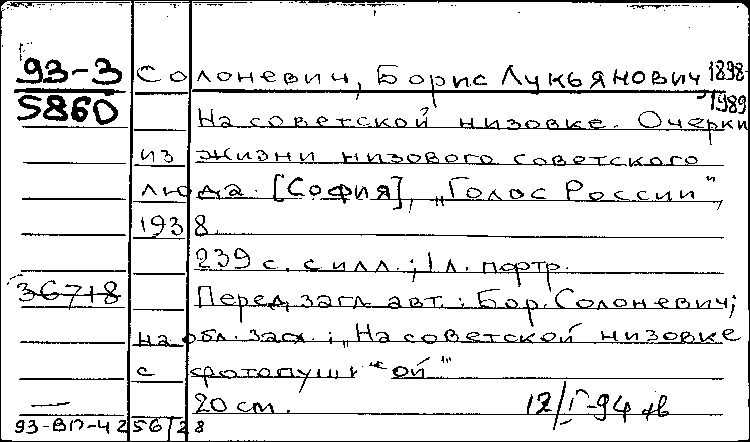 93-3 Солоневич, Борис Лукьянович 1898-
5860 1989
На советской низовке. Очерки
из жизни низового советского
люда. [София], „Голос России",
1938.
239 с. с илл.; 1 л. портр.
36718 Перед загл. авт.: Бор. Солоневич;
на обл. загл.: „На советской низовке
с фотопушкой"
20 см.
93-ВП-4256/28